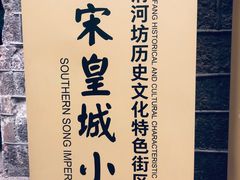 清河坊历史文化特色街区
FANG HISTORICAL AND CULTURAL CHARACTERISTIC
宋皇城小
SOUTHERN SONG IMPER